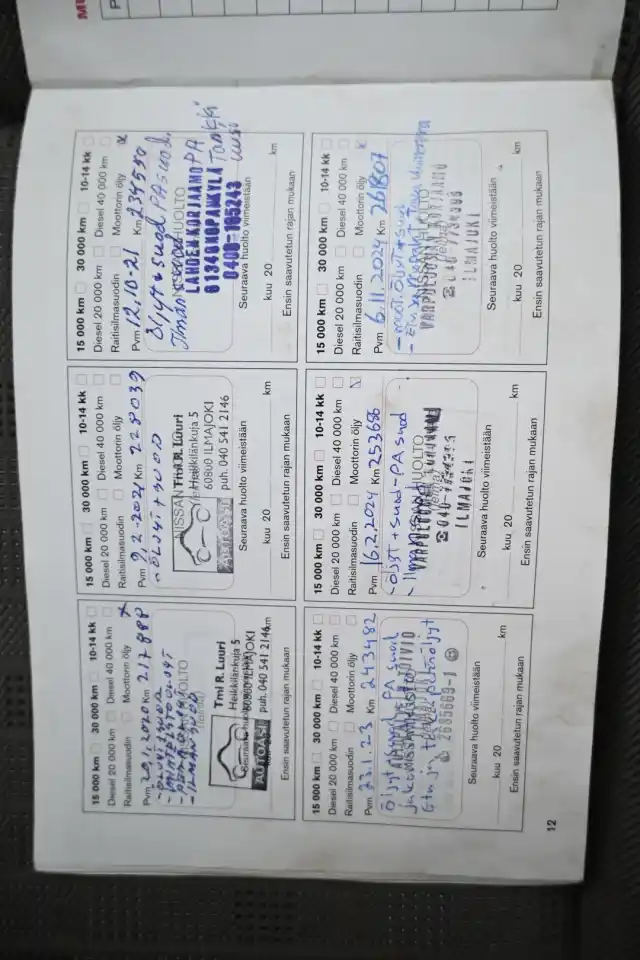 15 000 km 30 000 km 10-14 kk
Diesel 20 000 km Diesel 40 000 km
Raitisilmasuodin Moottorin öljy x
Pvm 20.1.2020 Km 217888
- ILMANSUOD
Tmi R. Luuri
Heikkilänkuja 5
60800 ILMAJOKI
puh. 040 541 2146
AUTOASI
km
Ensin saavutetun rajan mukaan
15 000 km 30 000 km 10-14 kk
Diesel 20 000 km Diesel 40 000 km
Raitisilmasuodin Moottorin öljy
Pvm 9.2.2021 Km 228039
- ÖLJYT + SUOD
NISSAN HUOLTO
Tmi R. Luuri
Heikkilänkuja 5
60800 ILMAJOKI
puh. 040 541 2146
AUTOASI
Seuraava huolto viimeistään
kuu 20 km
Ensin saavutetun rajan mukaan
15 000 km 30 000 km 10-14 kk
Diesel 20 000 km Diesel 40 000 km
Raitisilmasuodin Moottorin öljy x
Pvm 12.10.21 Km 234550
Öljyt + suod, PA suod.
Ilman
LAHDEN KORJAAMO PA
61340 KOPANKYLÄ
0400-165243
Seuraava huolto viimeistään
kuu 20 km
Ensin saavutetun rajan mukaan
15 000 km 30 000 km 10-14 kk
Diesel 20 000 km Diesel 40 000 km
Raitisilmasuodin Moottorin öljy
Pvm 23.1.23 Km 243482
Öljyt PA suod
2695669-1
Seuraava huolto viimeistään
kuu 20 km
Ensin saavutetun rajan mukaan
15 000 km 30 000 km 10-14 kk
Diesel 20 000 km Diesel 40 000 km
Raitisilmasuodin Moottorin öljy
Pvm 16.2.2024 Km 253686
- öljyt + suod - PA suod
- Ilmansuod
ILMAJOKI
Seuraava huolto viimeistään
kuu 20 km
Ensin saavutetun rajan mukaan
15 000 km 30 000 km 10-14 kk
Diesel 20 000 km Diesel 40 000 km
Raitisilmasuodin Moottorin öljy x
Pvm 6.11.2024 Km 26807
- moot. öljyt + suod
ILMAJOKI
Seuraava huolto viimeistään
kuu 20 km
Ensin saavutetun rajan mukaan
12